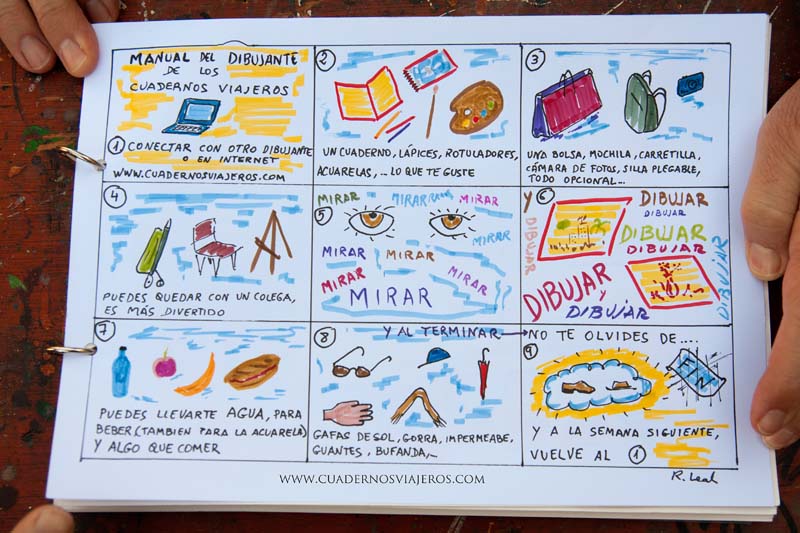 MANUAL DEL DIBUJANTE
DE LOS
CUADERNOS VIAJEROS
① CONECTAR CON OTRO DIBUJANTE
O EN INTERNET
WWW.CUADERNOSVIAJEROS.COM
②
UN CUADERNO, LÁPICES, ROTULADORES,
ACUARELAS, ... LO QUE TE GUSTE
③
UNA BOLSA, MOCHILA, CARRETILLA,
CÁMARA DE FOTOS, SILLA PLEGABLE,
TODO OPCIONAL...
④
PUEDES QUEDAR CON UN COLEGA,
ES MÁS DIVERTIDO
⑤
MIRAR
MIRAR
MIRAR
MIRAR
MIRAR
MIRAR
MIRAR
MIRAR
MIRAR
⑥
Y
DIBUJAR
DIBUJAR
DIBUJAR
DIBUJAR
DIBUJAR
DIBUJAR
Y
DIBUJAR
DIBUJAR
⑦
PUEDES LLEVARTE AGUA, PARA
BEBER (TAMBIEN PARA LA ACUARELA)
Y ALGO QUE COMER
⑧
GAFAS DE SOL, GORRA, IMPERMEABE,
GUANTES, BUFANDA,...
Y AL TERMINAR → NO TE OLVIDES DE....
⑨
FIN
Y A LA SEMANA SIGUIENTE,
VUELVE AL ①
R. Leal
WWW.CUADERNOSVIAJEROS.COM